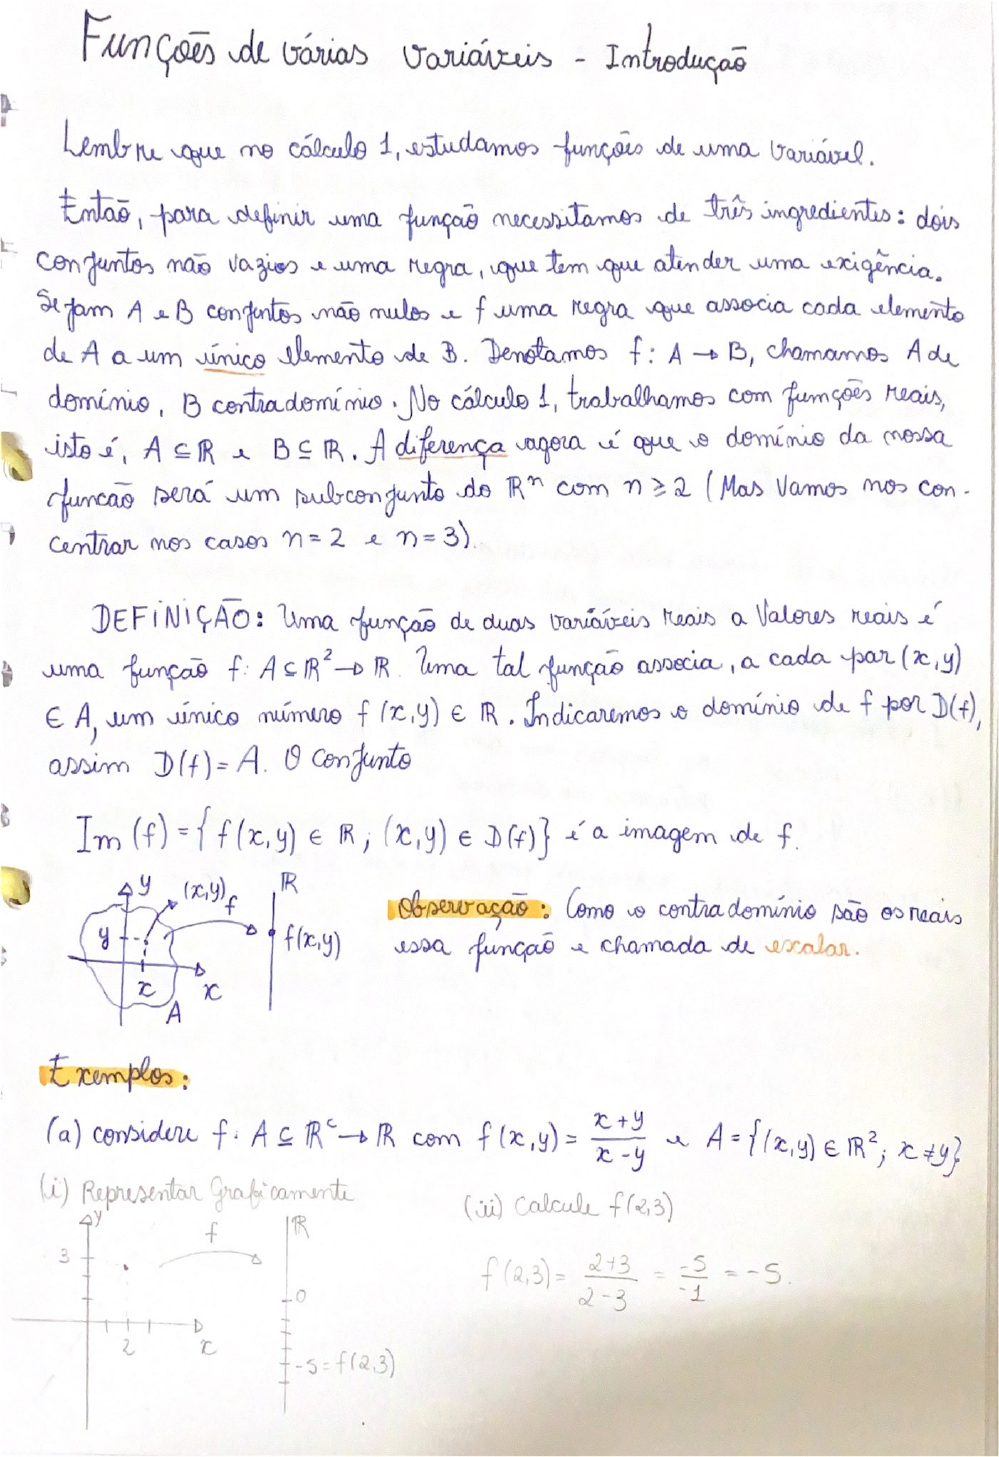 Funções de várias variáveis - Introdução
Lembre que no cálculo 1, estudamos funções de uma variável.
Então, para definir uma função necessitamos de três ingredientes: dois
conjuntos não vazios e uma regra, que tem que atender uma exigência.
Sejam A e B conjuntos não nulos e f uma regra que associa cada elemento
de A a um único elemento de B. Denotamos f: A → B, chamamos A de
domínio, B contradomínio. No cálculo 1, trabalhamos com funções reais,
isto é, A ⊆ ℝ e B ⊆ ℝ. A diferença agora é que o domínio da nossa
funcão será um subconjunto do ℝⁿ com n ≥ 2 (Mas vamos nos con-
centrar nos casos n = 2 e n = 3).
DEFINIÇÃO: Uma função de duas variáveis reais a valores reais é
uma função f: A ⊆ ℝ² → ℝ. Uma tal função associa, a cada par (x,y)
∈ A, um único número f(x,y) ∈ ℝ. Indicaremos o domínio de f por D(f),
assim D(f) = A. O conjunto
Im(f) = {f(x,y) ∈ ℝ; (x,y) ∈ D(f)} é a imagem de f.
y (x,y) f ℝ
y f(x,y)
x x
A
Observação: Como o contradomínio são os reais
essa função e chamada de escalar.
Exemplos:
(a) considere f: A ⊆ ℝᶜ → ℝ com f(x,y) = x+y / x-y e A = {(x,y) ∈ ℝ²; x ≠ y}
(i) Representar Graficamente
y f ℝ
3
0
2 x
-5 = f(2,3)
(ii) Calcule f(2,3)
f(2,3) = 2+3 / 2-3 = -5 / -1 = -5.